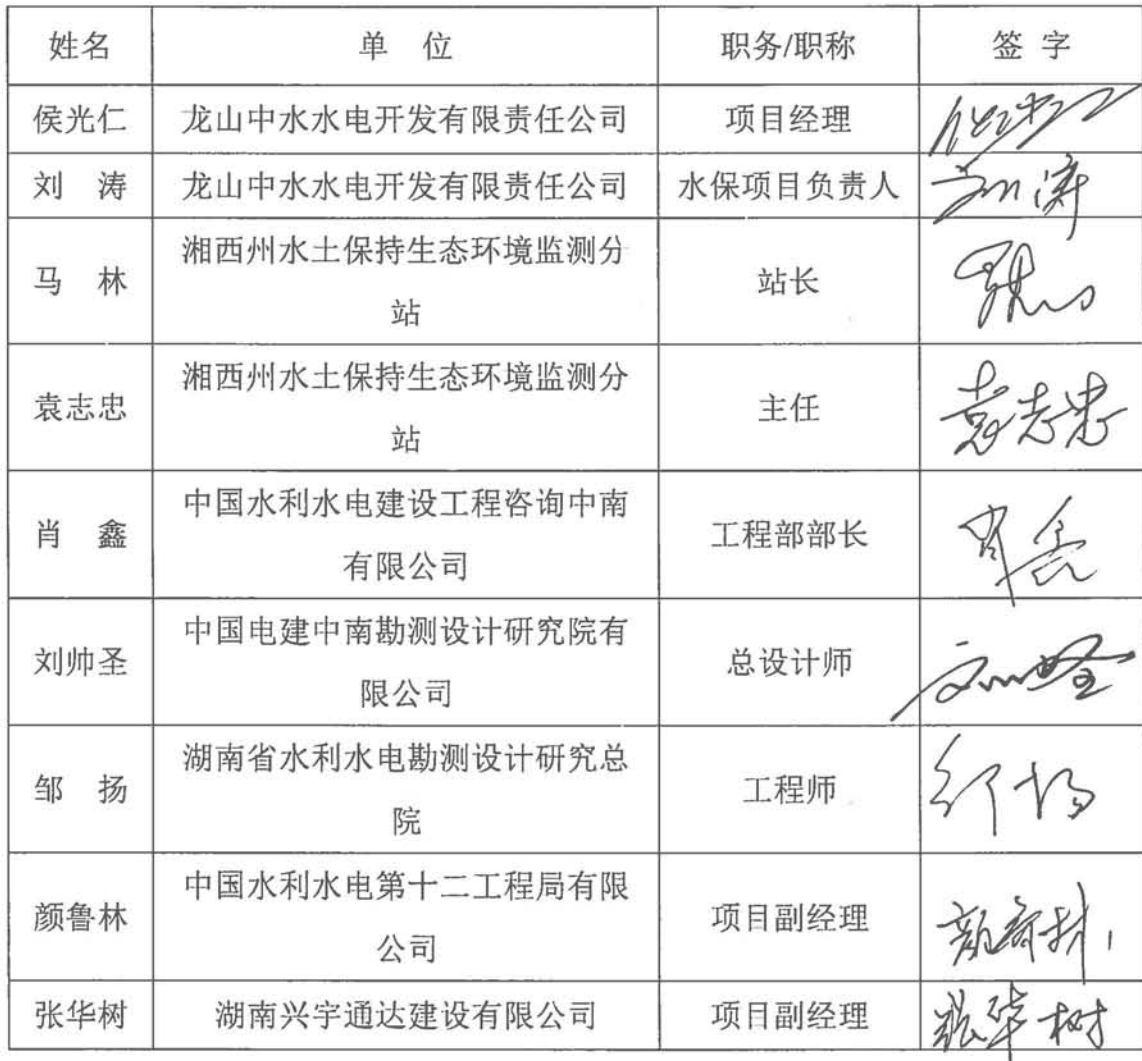 姓名 单 位 职务/职称 签 字
侯光仁 龙山中水水电开发有限责任公司 项目经理
刘 涛 龙山中水水电开发有限责任公司 水保项目负责人 刘涛
马 林 湘西州水土保持生态环境监测分
站 站长
袁志忠 湘西州水土保持生态环境监测分
站 主任 袁志忠
肖 鑫 中国水利水电建设工程咨询中南
有限公司 工程部部长 肖鑫
刘帅圣 中国电建中南勘测设计研究院有
限公司 总设计师
邹 扬 湖南省水利水电勘测设计研究总
院 工程师 邹扬
颜鲁林 中国水利水电第十二工程局有限
公司 项目副经理 颜鲁林
张华树 湖南兴宇通达建设有限公司 项目副经理 张华树